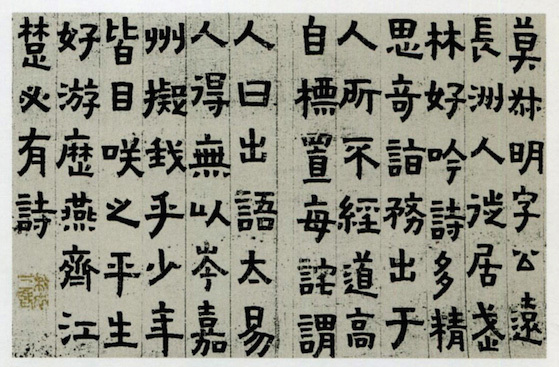 莫叔明字公遠
長洲人徙居武
林好吟詩多精
思奇詣務出于
人所不經道高
自標置每詫謂
人曰出語太易
人得無以岑嘉
州擬我乎少年
皆目咲之平生
好游歷燕齊江
楚必有詩